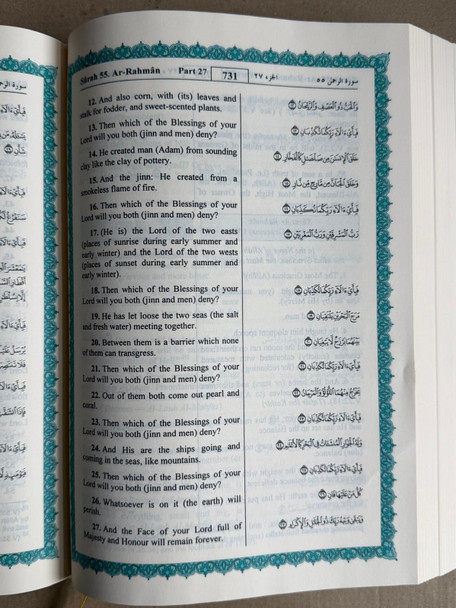 Sûrah 55. Ar-Rahmân    Part 27    731    الجزء ٢٧    سورة الرحمن ٥٥
12. And also corn, with (its) leaves and
stalk for fodder, and sweet-scented plants.
13. Then which of the Blessings of your
Lord will you both (jinn and men) deny?
14. He created man (Adam) from sounding
clay like the clay of pottery.
15. And the jinn: He created from a
smokeless flame of fire.
16. Then which of the Blessings of your
Lord will you both (jinn and men) deny?
17. (He is) the Lord of the two easts
(places of sunrise during early summer and
early winter) and the Lord of the two wests
(places of sunset during early summer and
early winter).
18. Then which of the Blessings of your
Lord will you both (jinn and men) deny?
19. He has let loose the two seas (the salt
and fresh water) meeting together.
20. Between them is a barrier which none
of them can transgress.
21. Then which of the Blessings of your
Lord will you both (jinn and men) deny?
22. Out of them both come out pearl and
coral.
23. Then which of the Blessings of your
Lord will you both (jinn and men) deny?
24. And His are the ships going and
coming in the seas, like mountains.
25. Then which of the Blessings of your
Lord will you both (jinn and men) deny?
26. Whatsoever is on it (the earth) will
perish.
27. And the Face of your Lord full of
Majesty and Honour will remain forever.
وَٱلْحَبُّ ذُو ٱلْعَصْفِ وَٱلرَّيْحَانُ ١٢
فَبِأَيِّ ءَالَآءِ رَبِّكُمَا تُكَذِّبَانِ ١٣
خَلَقَ ٱلْإِنسَٰنَ مِن صَلْصَٰلٍ كَٱلْفَخَّارِ ١٤
وَخَلَقَ ٱلْجَآنَّ مِن مَّارِجٍ مِّن نَّارٍ ١٥
فَبِأَيِّ ءَالَآءِ رَبِّكُمَا تُكَذِّبَانِ ١٦
رَبُّ ٱلْمَشْرِقَيْنِ وَرَبُّ ٱلْمَغْرِبَيْنِ ١٧
فَبِأَيِّ ءَالَآءِ رَبِّكُمَا تُكَذِّبَانِ ١٨
مَرَجَ ٱلْبَحْرَيْنِ يَلْتَقِيَانِ ١٩
بَيْنَهُمَا بَرْزَخٌ لَّا يَبْغِيَانِ ٢٠
فَبِأَيِّ ءَالَآءِ رَبِّكُمَا تُكَذِّبَانِ ٢١
يَخْرُجُ مِنْهُمَا ٱللُّؤْلُؤُ وَٱلْمَرْجَانُ ٢٢
فَبِأَيِّ ءَالَآءِ رَبِّكُمَا تُكَذِّبَانِ ٢٣
وَلَهُ ٱلْجَوَارِ ٱلْمُنشَـَٔاتُ فِى ٱلْبَحْرِ كَٱلْأَعْلَٰمِ ٢٤
فَبِأَيِّ ءَالَآءِ رَبِّكُمَا تُكَذِّبَانِ ٢٥
كُلُّ مَنْ عَلَيْهَا فَانٍ ٢٦
وَيَبْقَىٰ وَجْهُ رَبِّكَ ذُو ٱلْجَلَٰلِ وَٱلْإِكْرَامِ ٢٧